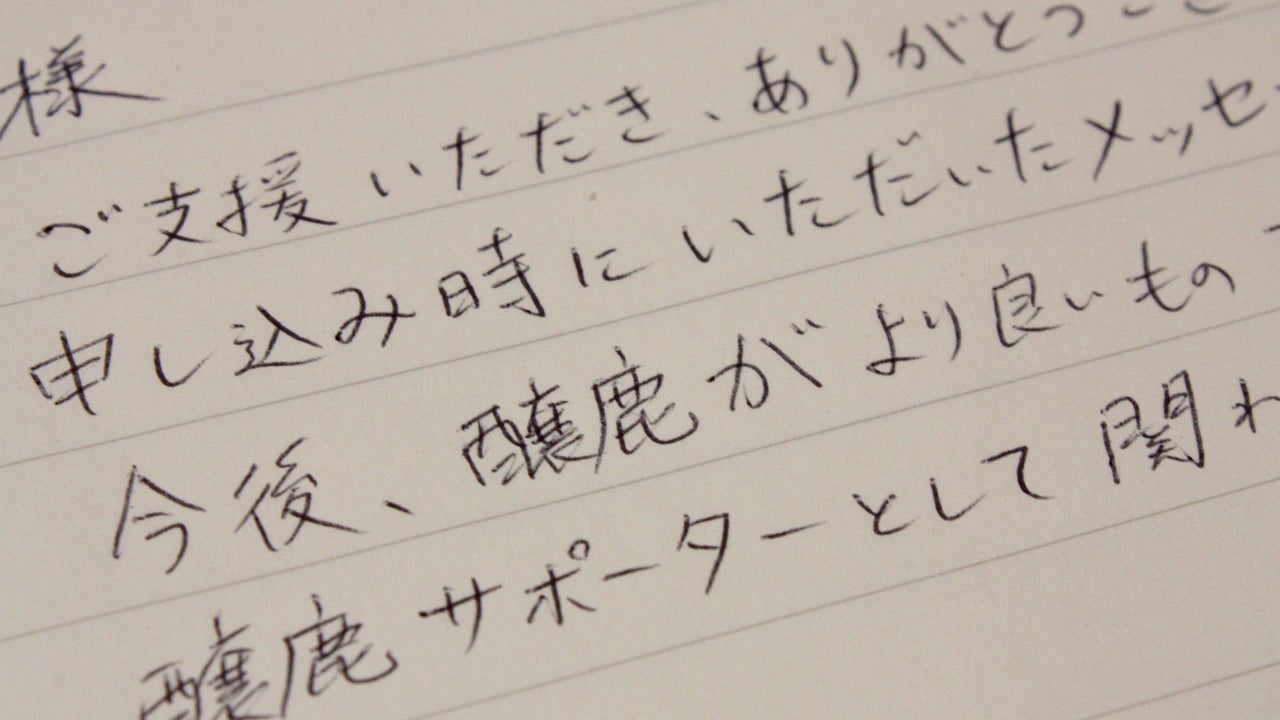 様
ご支援いただき、ありがとうござ
申し込み時にいただいたメッセ
今後、醸鹿がより良いもの
醸鹿サポーターとして関わ